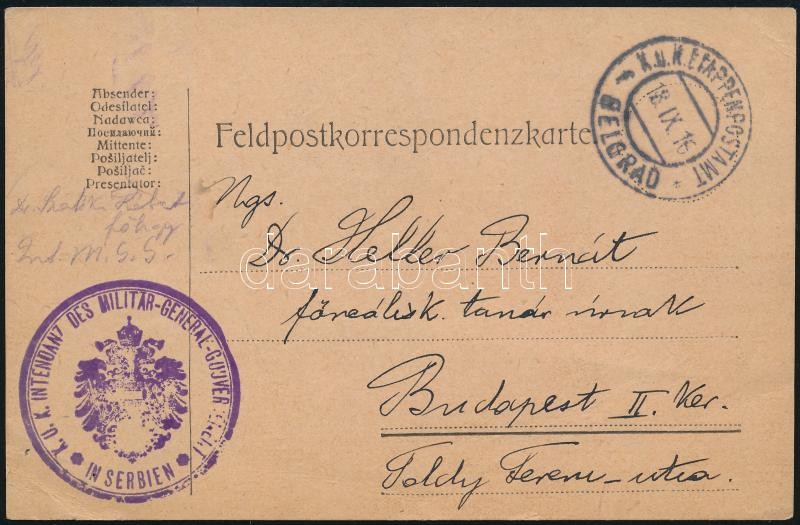 Absender:
Odesílatel:
Nadawca:
Посилаючий:
Mittente:
Pošiljatelj:
Pošiljač:
Presentator:
Feldpostkorrespondenzkarte
K.u.K. ETAPPENPOSTAMT
BELGRAD
18 IX. 16
Ngs.
Dr. Heller Bernát
főreálisk. tanár úrnak
Budapest II. Ker.
Toldy Ferenc-utca.
Dr.
M. S. S.
K. U. K. INTENDANZ DES MILITÄR-GENERAL-GOUVER
IN SERBIEN
darabanth